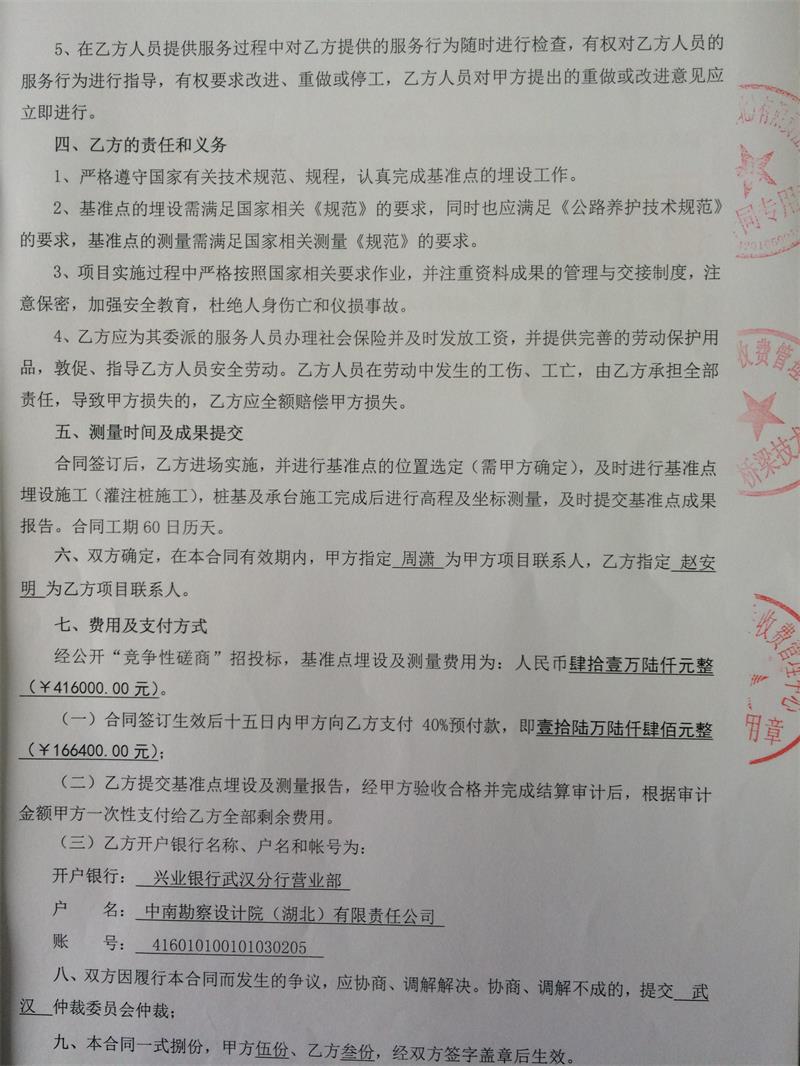 5、在乙方人员提供服务过程中对乙方提供的服务行为随时进行检查，有权对乙方人员的
服务行为进行指导，有权要求改进、重做或停工，乙方人员对甲方提出的重做或改进意见应
立即进行。
四、乙方的责任和义务
1、严格遵守国家有关技术规范、规程，认真完成基准点的埋设工作。
2、基准点的埋设需满足国家相关《规范》的要求，同时也应满足《公路养护技术规范》
的要求，基准点的测量需满足国家相关测量《规范》的要求。
3、项目实施过程中严格按照国家相关要求作业，并注重资料成果的管理与交接制度，注
意保密，加强安全教育，杜绝人身伤亡和仪损事故。
4、乙方应为其委派的服务人员办理社会保险并及时发放工资，并提供完善的劳动保护用
品，敦促、指导乙方人员安全劳动。乙方人员在劳动中发生的工伤、工亡，由乙方承担全部
责任，导致甲方损失的，乙方应全额赔偿甲方损失。
五、测量时间及成果提交
合同签订后，乙方进场实施，并进行基准点的位置选定（需甲方确定），及时进行基准点
埋设施工（灌注桩施工），桩基及承台施工完成后进行高程及坐标测量，及时提交基准点成果
报告。合同工期 60 日历天。
六、双方确定，在本合同有效期内，甲方指定 周潇 为甲方项目联系人，乙方指定 赵安
明 为乙方项目联系人。
七、费用及支付方式
经公开“竞争性磋商”招投标，基准点埋设及测量费用为：人民币肆拾壹万陆仟元整
（￥416000.00 元）。
（一）合同签订生效后十五日内甲方向乙方支付 40%预付款，即壹拾陆万陆仟肆佰元整
（￥166400.00 元）；
（二）乙方提交基准点埋设及测量报告，经甲方验收合格并完成结算审计后，根据审计
金额甲方一次性支付给乙方全部剩余费用。
（三）乙方开户银行名称、户名和帐号为：
开户银行： 兴业银行武汉分行营业部
户 名： 中南勘察设计院（湖北）有限责任公司
账 号： 416010100101030205
八、双方因履行本合同而发生的争议，应协商、调解解决。协商、调解不成的，提交 武
汉 仲裁委员会仲裁；
九、本合同一式捌份，甲方伍份、乙方叁份，经双方签字盖章后生效。
北)有限责
同专用
收费管理
桥梁技术
收费管理中心
用章